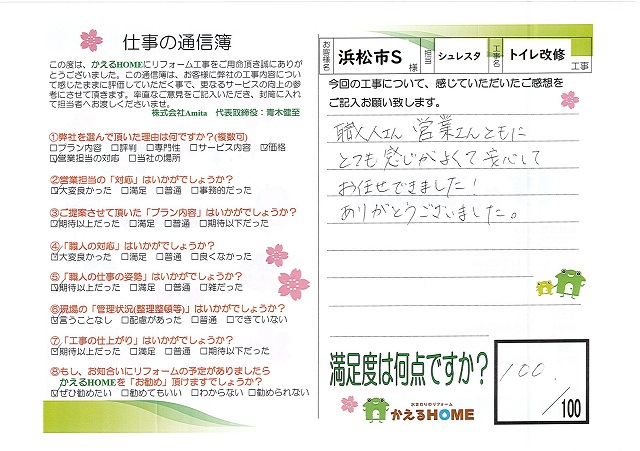 仕事の通信簿
この度は、かえるHOMEにリフォーム工事をご用命頂き誠にありが
とうございました。この通信簿は、お客様に弊社の工事内容につい
て感じたままに評価していただく事で、更なるサービスの向上の参
考にさせて頂きます。率直なご意見をご記入いただき、封筒に入れ
て担当者へお渡しくださいませ。
株式会社Amita 代表取締役:青木健至
①弊社を選んで頂いた理由は何ですか?(複数可)
□プラン内容 □評判 □専門性 □サービス内容 ☑価格
☑営業担当の対応 □当社の場所
②営業担当の「対応」はいかがでしょうか?
☑大変良かった □満足 □普通 □事務的だった
③ご提案させて頂いた「プラン内容」はいかがでしょうか?
☑期待以上だった □満足 □普通 □期待以下だった
④「職人の対応」はいかがでしょうか?
☑大変良かった □満足 □普通 □良くなかった
⑤「職人の仕事の姿勢」はいかがでしょうか?
☑期待以上だった □満足 □普通 □雑だった
⑥現場の「管理状況(整理整頓等)」はいかがでしょうか?
☑言うことなし □配慮があった □普通 □できていない
⑦「工事の仕上がり」はいかがでしょうか?
☑期待以上だった □満足 □普通 □期待以下だった
⑧もし、お知合いにリフォームの予定がありましたら
かえるHOMEを「お勧め」頂けますでしょうか?
☑ぜひ勧めたい □勧めてもいい □わからない □勧められない
お客様名 浜松市S 様 担当 シュレスタ 工事名 トイレ改修 工事
今回の工事について、感じていただいたご感想を
ご記入お願い致します。
職人さん 営業さんともに
とても感じがよくて安心して
お任せできました!
ありがとうございました。
満足度は何点ですか?
100.
/100
水まわりのリフォーム
かえるHOME